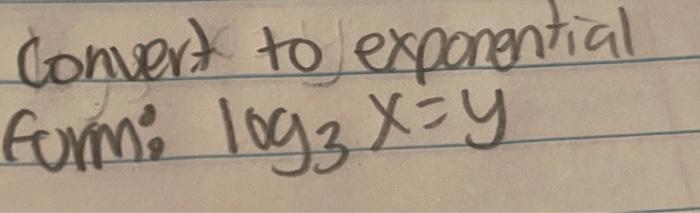 Convert to exponential
form: log₃ x = y